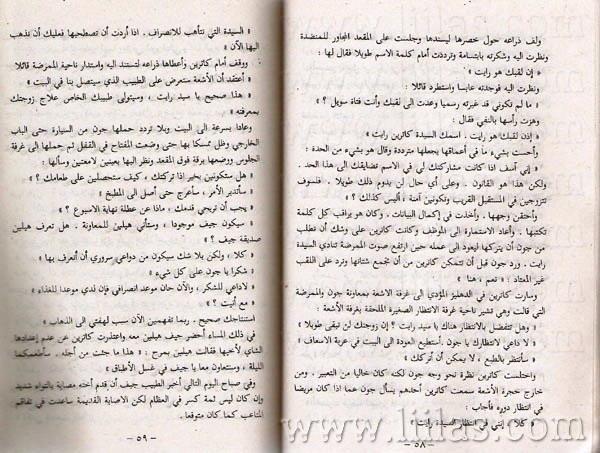 ولف ذراعه حول خصرها ليسندها وجلست على المقعد المجاور للمنضدة
ونظرت اليه وشكرته بابتسامة وترددت أمام كلمة الاسم طويلا فقال لها :
« إن لقبك هو رايت »
ونظرت اليه فوجدته عابسا واستطرد قائلا :
« ما لم تكوني قد غيرته رسميا وعدت الى لقبك وأنت فتاة سويل ؟ »
وهزت رأسها بالنفي فقال :
« إذن لقبك هو رايت . اسمك السيدة كاترين رايت »
وأحست بشيء ما في أعماقها يجعلها مترددة وقال هو بشيء من الحدة :
« إني آسف اذا كانت مشاركتك لي في الاسم تضايقك الى هذا الحد .
ولكن هذا هو القانون . وعلى أي حال لن يدوم ذلك طويلا . فلسوف
تتزوجين في المستقبل القريب وتكونين آمنة ، أليس كذلك ؟ »
وأخفق وجهها . وأخذت في إكمال البيانات . وكان هو يراقب كل كلمة
تكتبها . وأعاد الاستمارة الى الموظف وكانت كاترين على وشك أن تطلب
من جون أن يتركها ليعود الى عمله حين ارتفع صوت الممرضة تنادي السيدة
رايت . ورد جون قبل أن تتمكن كاترين من أن تجمع شتاتها وترد على اللقب
غير المعتاد : « نعم ، هنا »
وسارت كاترين في الدهليز المؤدي الى غرفة الاشعة بمعاونة جون والممرضة
التي قالت وهي تشير ناحية غرفة الانتظار الصغيرة الملحقة بغرفة الأشعة :
« وهل تتفضل بالانتظار هناك يا سيد رايت ؟ إن زوجتك لن تبقى طويلا »
« لا داعي لانتظارك يا جون . أستطيع العودة الى البيت في عربة الاسعاف »
« سأنتظر بالطبع ، لا يمكن أن أتركك »
واختلست كاترين نظرة نحو وجه جون لكنه كان خاليا من التعبير . ومن
خارج حجرة الأشعة سمعت كاترين أحدهم يسأل جون عما اذا كان مريضا
في انتظار دوره فأجاب :
« كلا ، إنني في انتظار السيدة رايت »
- ٥٨ -
« السيدة التي تتأهب للانصراف . اذا أردت أن تصطحبها فعليك أن تذهب
اليها الآن »
ووقف أمام كاترين وأعطاها ذراعه لتستند اليه واستدار ناحية الممرضة قائلا
« أعتقد أن الأشعة ستعرض على الطبيب الذي سيتصل بنا في البيت »
« هذا صحيح يا سيد رايت ، وسيتولى طبيبك الخاص علاج زوجتك
بمعرفته »
وعادا بسرعة الى البيت وبلا تردد حملها جون من السيارة حتى الباب
الخارجي وظل ممسكا بها حتى وضعت المفتاح في القفل ثم حملها الى غرفة
الجلوس ووضعها برقة فوق المقعد ونظر اليها بعينين لامعتين وسألها :
« هل ستكونين بخير اذا تركتك ، كيف ستحصلين على طعامك ؟ »
« سأتدبر الأمر ، سأعرج حتى أصل الى المطبخ »
« يجب أن تريحي قدمك ، ماذا عن عطلة نهاية الاسبوع ؟ »
« سيكون جيف موجودا ، وستأتي هيلين للمعاونة . هل تعرف هيلين
صديقة جيف ؟ »
« كلا ، ولكن بلا شك سيكون من دواعي سروري أن أتعرف بها »
« شكرا يا جون على كل شيء »
« لاداعي للشكر ، والآن حان موعد انصرافي فإن لدي موعدا للغداء »
« مع أنيت ؟ »
استنتاجك صحيح . ربما تفهمين الآن سبب لهفتي الى الذهاب »
في ذلك المساء أحضر جيف هيلين معه واعتذرت كاترين عن عدم إعدادها
الشاي لأخيها فقالت هيلين بمرح : « هذا ما جئت من أجله . سأطعمكما
الليلة ، وستعاون معا يا جيف في غسل الأطباق »
وفي صباح اليوم التالي أخبر الطبيب جيف أن قدم أخته مصابة بالتواء شديد
وإن كان ليس ثمة كسر في العظام لكن الاصابة القديمة ساعدت في تفاقم
المتاعب كما كان متوقعا .
- ٥٩ -
www.liilas.com